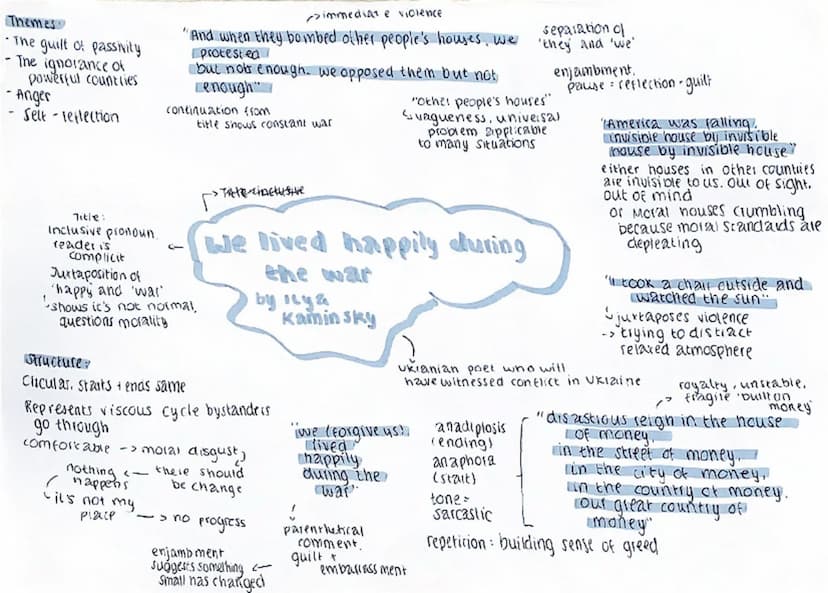 Themes:
· The guilt of passivity
- The ignorance of
powerful countries
- Anger
- Self-reflection
→ immediate violence
"And when they bombed other people's houses, we
protested
but not enough. we opposed them but not
enough"
continuation from
title shows constant war
"other people's houses"
↳ vagueness, universal
problem applicable
to many situations
separation of
'they' and 'we'
enjambment.
pause = reflection - guilt
"America was falling.
invisible house by invisible
house by invisible house"
either houses in other countries
are invisible to us. out of sight.
out of mind
or Moral houses crumbling
because moral standards are
depleating
"I took a chair outside and
watched the sun"
↳ juxtaposes violence
-> trying to distract
relaxed atmosphere
Title:
inclusive pronoun.
reader is
complicit
Juxtaposition of
'happy' and 'war'
↳ shows it's not normal,
questions morality
We lived happily during
the war
by Ilya
Kaminsky
Ukranian poet who will
have witnessed conflict in Ukraine
Structure:
Circular, starts + ends same
Represents viscous cycle bystanders
go through
comfortable -> moral disgust
there should
be change
nothing
happens
↳ it's not my
place -> no progress
"we (forgive us)
lived
happily
during the
war"
parenthetical
comment.
guilt +
embarassment
enjambment
suggests something
small has changed
anadiplosis
(ending)
anaphora
(start)
tone=
sarcastic
royalty, unstable,
fragile 'built on
money'
"disastrous reign in the house
of money,
in the street of money,
in the city of money,
in the country of money.
our great country of
money"
repetition: building sense of greed